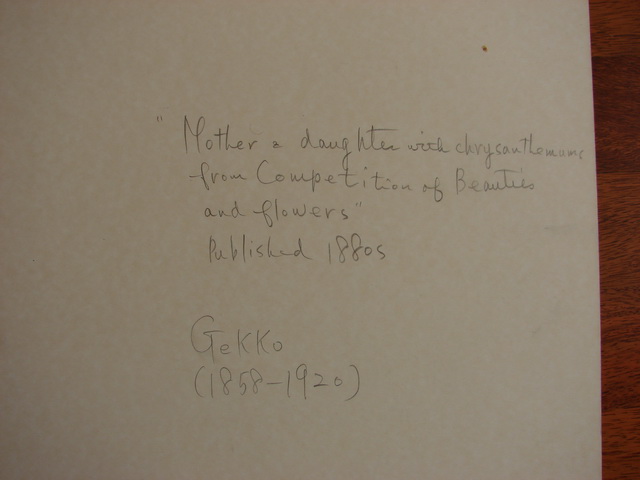 "Mother & daughter with chrysanthemums
from Competition of Beauties
and flowers"
Published 1880s
Gekko
(1858-1920)